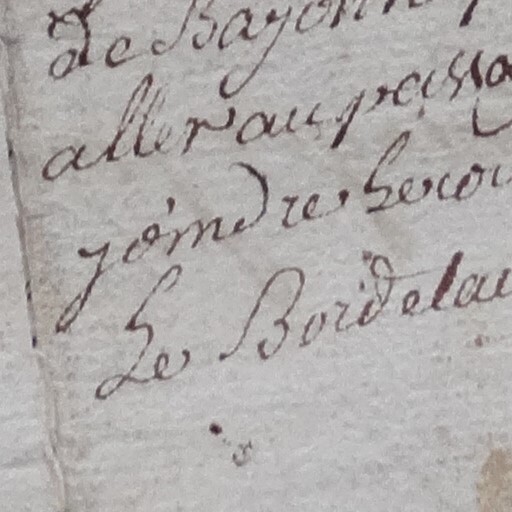 de Bayonn
aller au passa
joindre le co
Le Bordelai